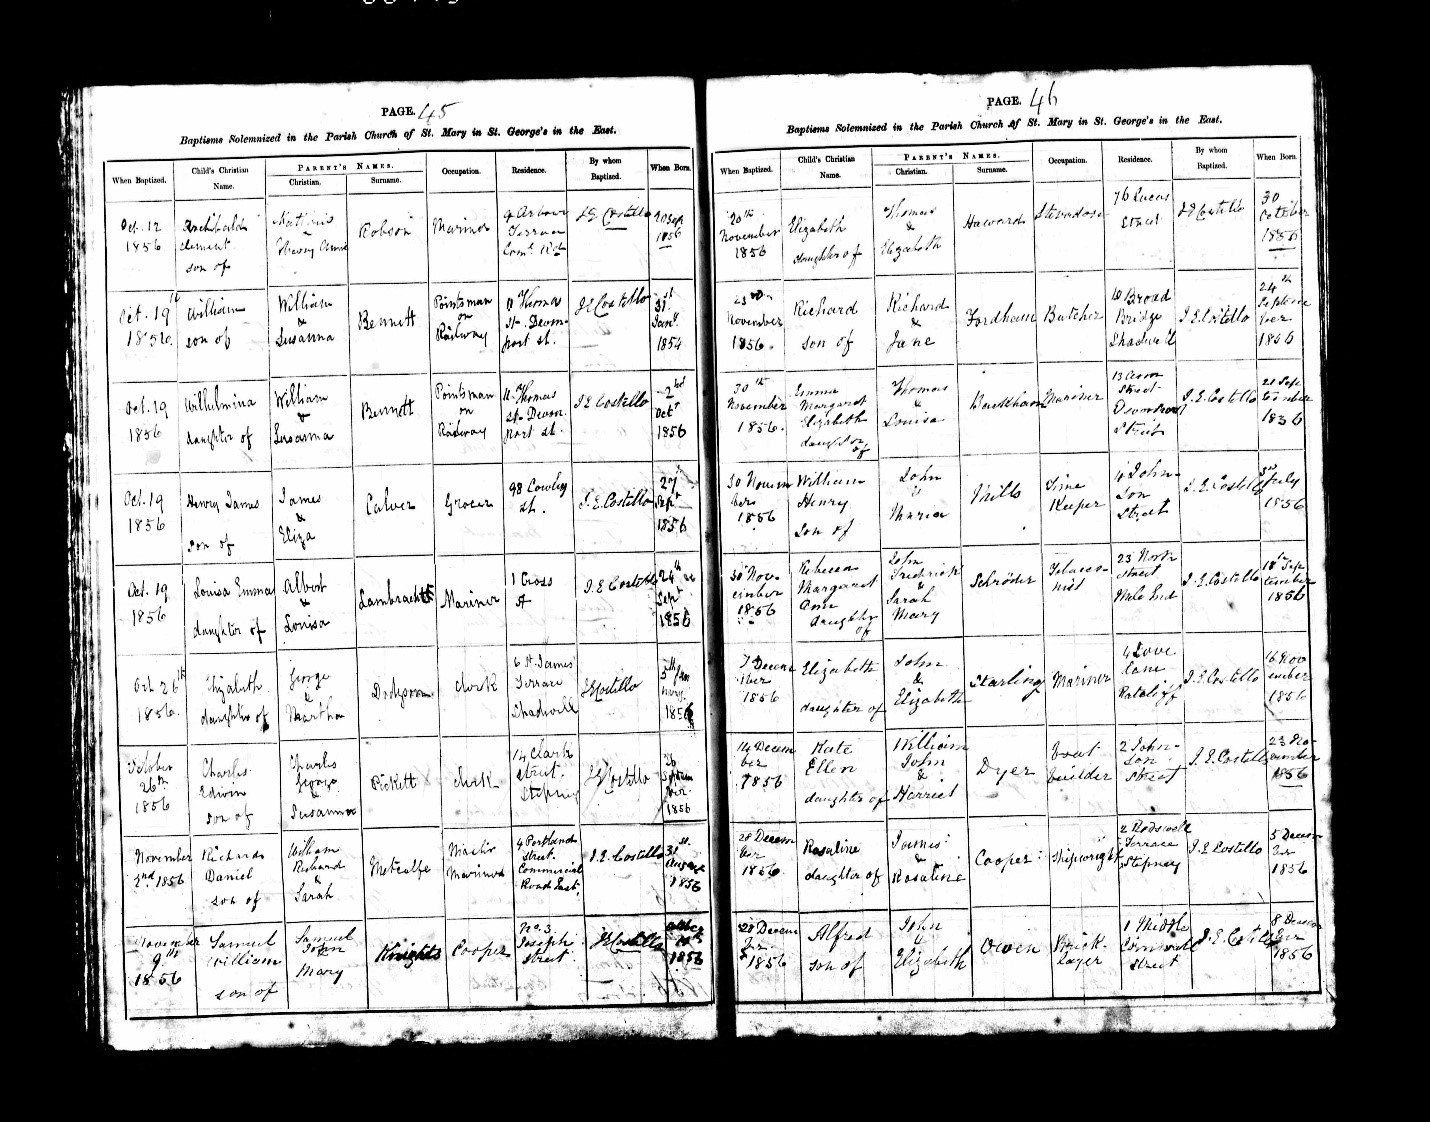 PAGE. 45
Baptisms Solemnized in the Parish Church of St. Mary in St. George's in the East.
When Baptized.
Child's Christian
Name.
PARENT'S NAMES.
Christian.
Surname.
Occupation.
Residence.
By whom
Baptized.
When Born.
Oct. 12
1856
Archibald
Clement
son of
Robson
Mariner
Terrace
J E Costello
20 Sep
1856
Oct. 19th
1856.
William
son of
William
&
Susanna
Bennett
Pointsman
on
Railway
11 Thomas
St. Devon-
port St.
J E Costello
31st
Jany
1854
Oct. 19
1856
Wilhelmina
daughter of
William
&
Susanna
Bennett
Pointsman
on
Railway
11 Thomas
St. Devon-
port St.
J E Costello
2nd
Octr
1856
Oct. 19
1856
Henry James
son of
James
&
Eliza
Calver
Grocer
98 Cowley
St.
J. E. Costello
27
Sept
1856
Oct. 19
1856
Louisa Emma
daughter of
Albert
&
Louisa
Lambracht
Mariner
1 Cross
St
J. E Costello
24th
Sept
1856
Oct 26th
1856.
Elizabeth
daughter of
George
&
Martha
Dodgson
clerk
6 St. James'
Terrace
Shadwell
J E Costello
5th Jan
uary
1856
October
26th
1856
Charles
Edwin
son of
Charles
George
&
Susannah
Pickett
clerk
14 Clark
Street,
Stepney
J E Costello
26
Septem
ber
1856
November
2nd 1856
Richard
Daniel
son of
William
Richard
&
Sarah
Metcalfe
Master
Mariner
4 Portland
Street.
Commercial
Road East.
J. E. Costello
31st
August
1856
November
9th
1856
Samuel
William
son of
Samuel
John
&
Mary
Knights
Cooper
No. 3.
Joseph
Street.
J E Costello
October
1856
PAGE. 46
Baptisms Solemnized in the Parish Church of St. Mary in St. George's in the East.
When Baptized.
Child's Christian
Name.
PARENT'S NAMES.
Christian.
Surname.
Occupation.
Residence.
By whom
Baptized.
When Born.
20th
November
1856
Elizabeth
daughter of
Thomas
&
Elizabeth
Haward
Stevadose
76 Lucas
Street
J E Costello
30
October
1856
23rd
November
1856.
Richard
son of
Richard
&
Jane
Fordham
Butcher
10 Broad
Bridge
Shadwell
J. E. Costello
24th
Septem
ber
1856
30th
November
1856.
Emma
Margaret
Elizabeth
daughter
of
Thomas
&
Louisa
Mariner
Street
Devonport
Street
J. E. Costello
21 Sep
tember
1856
30 Novem
ber
1856
William
Henry
son of
John
&
Maria
Mills
Time
Keeper
John-
son
Street
J. E. Costello
3rd July
1856
30 Nov-
ember
1856
Rebecca
Margaret
Ann
daughter
of
John
Frederick
&
Sarah
Mary
Schröder
Tobacco-
nist
23 North
Street
Mile End
J. E. Costello
18 Sep
tember
1856
7 Decem
ber
1856
Elizabeth
daughter of
John
&
Elizabeth
Starling
Mariner
4 Love
Lane
Ratcliff
J. E. Costello
16 Nov
ember
1856
14 Decem
ber
1856
Kate
Ellen
daughter of
William
John
&
Harriet
Dyer
boat
builder
2 John-
son
Street
J. E. Costello
23 No-
vember
1856
28 Decem
ber
1856
Rosaline
daughter of
James
&
Rosaline
Cooper
Shipwright
2
Terrace
Stepney
J. E Costello
5 Decem
ber
1856
28 Decem
ber
1856
Alfred
son of
John
&
Elizabeth
Owen
Brick-
layer
1 Middle
Cornwall
Street
J. E. Costello
8 Decem
ber
1856